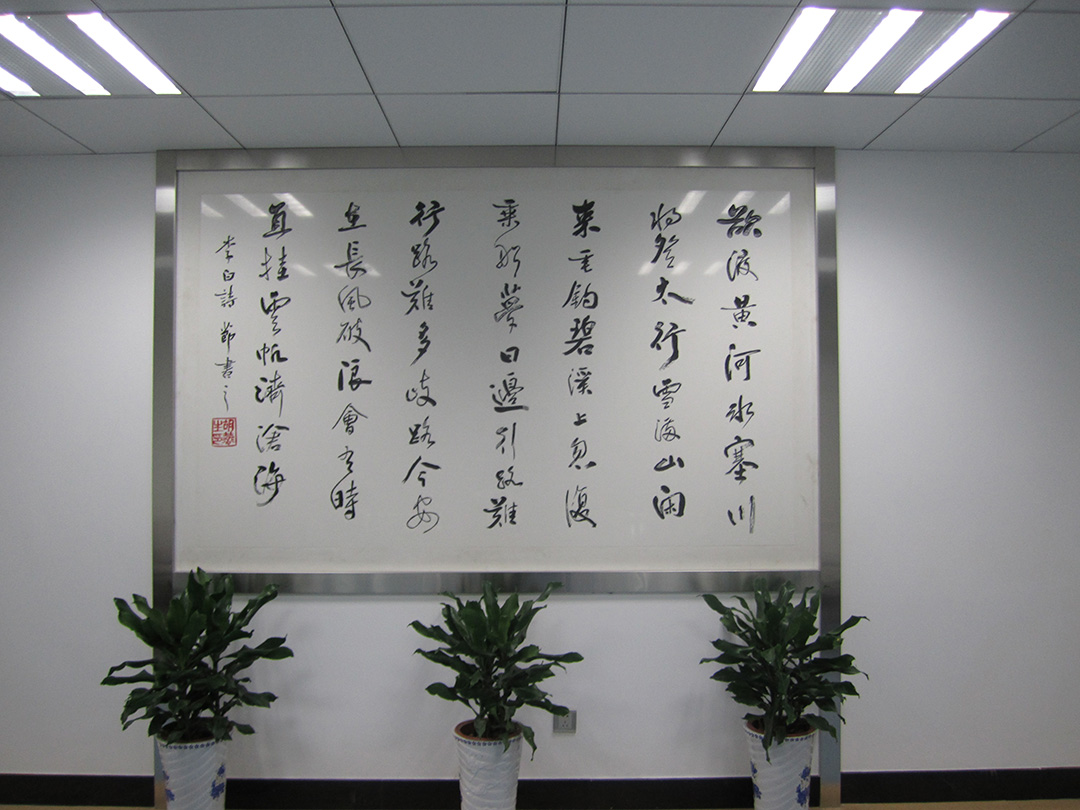 欲渡黄河冰塞川
将登太行雪滿山閑
来垂釣碧溪上忽復
乘船夢日邊行路難
行路難多歧路今安
在長風破浪會有時
直挂雲帆濟滄海
李白詩 節書之